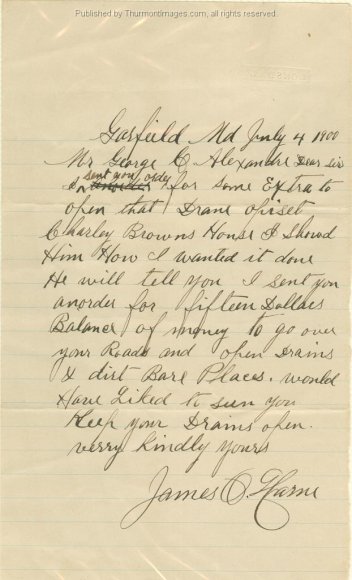 Published by ThurmontImages.com, all rights reserved
Garfield Md July 4 1900
Mr George C. Alexandre Dear Sir
I sent you order for some Extra to
open that Drane opiset
Charley Browns House I Showd
Him How I wanted it done
He will tell you I sent you
anorder for fifteen Dollars
Balance of money to go over
your Roads and open Drains
& dirt Bare Places. would
Have Liked to seen you
Keep your Drains open.
verry kindly yours
James O. Harne